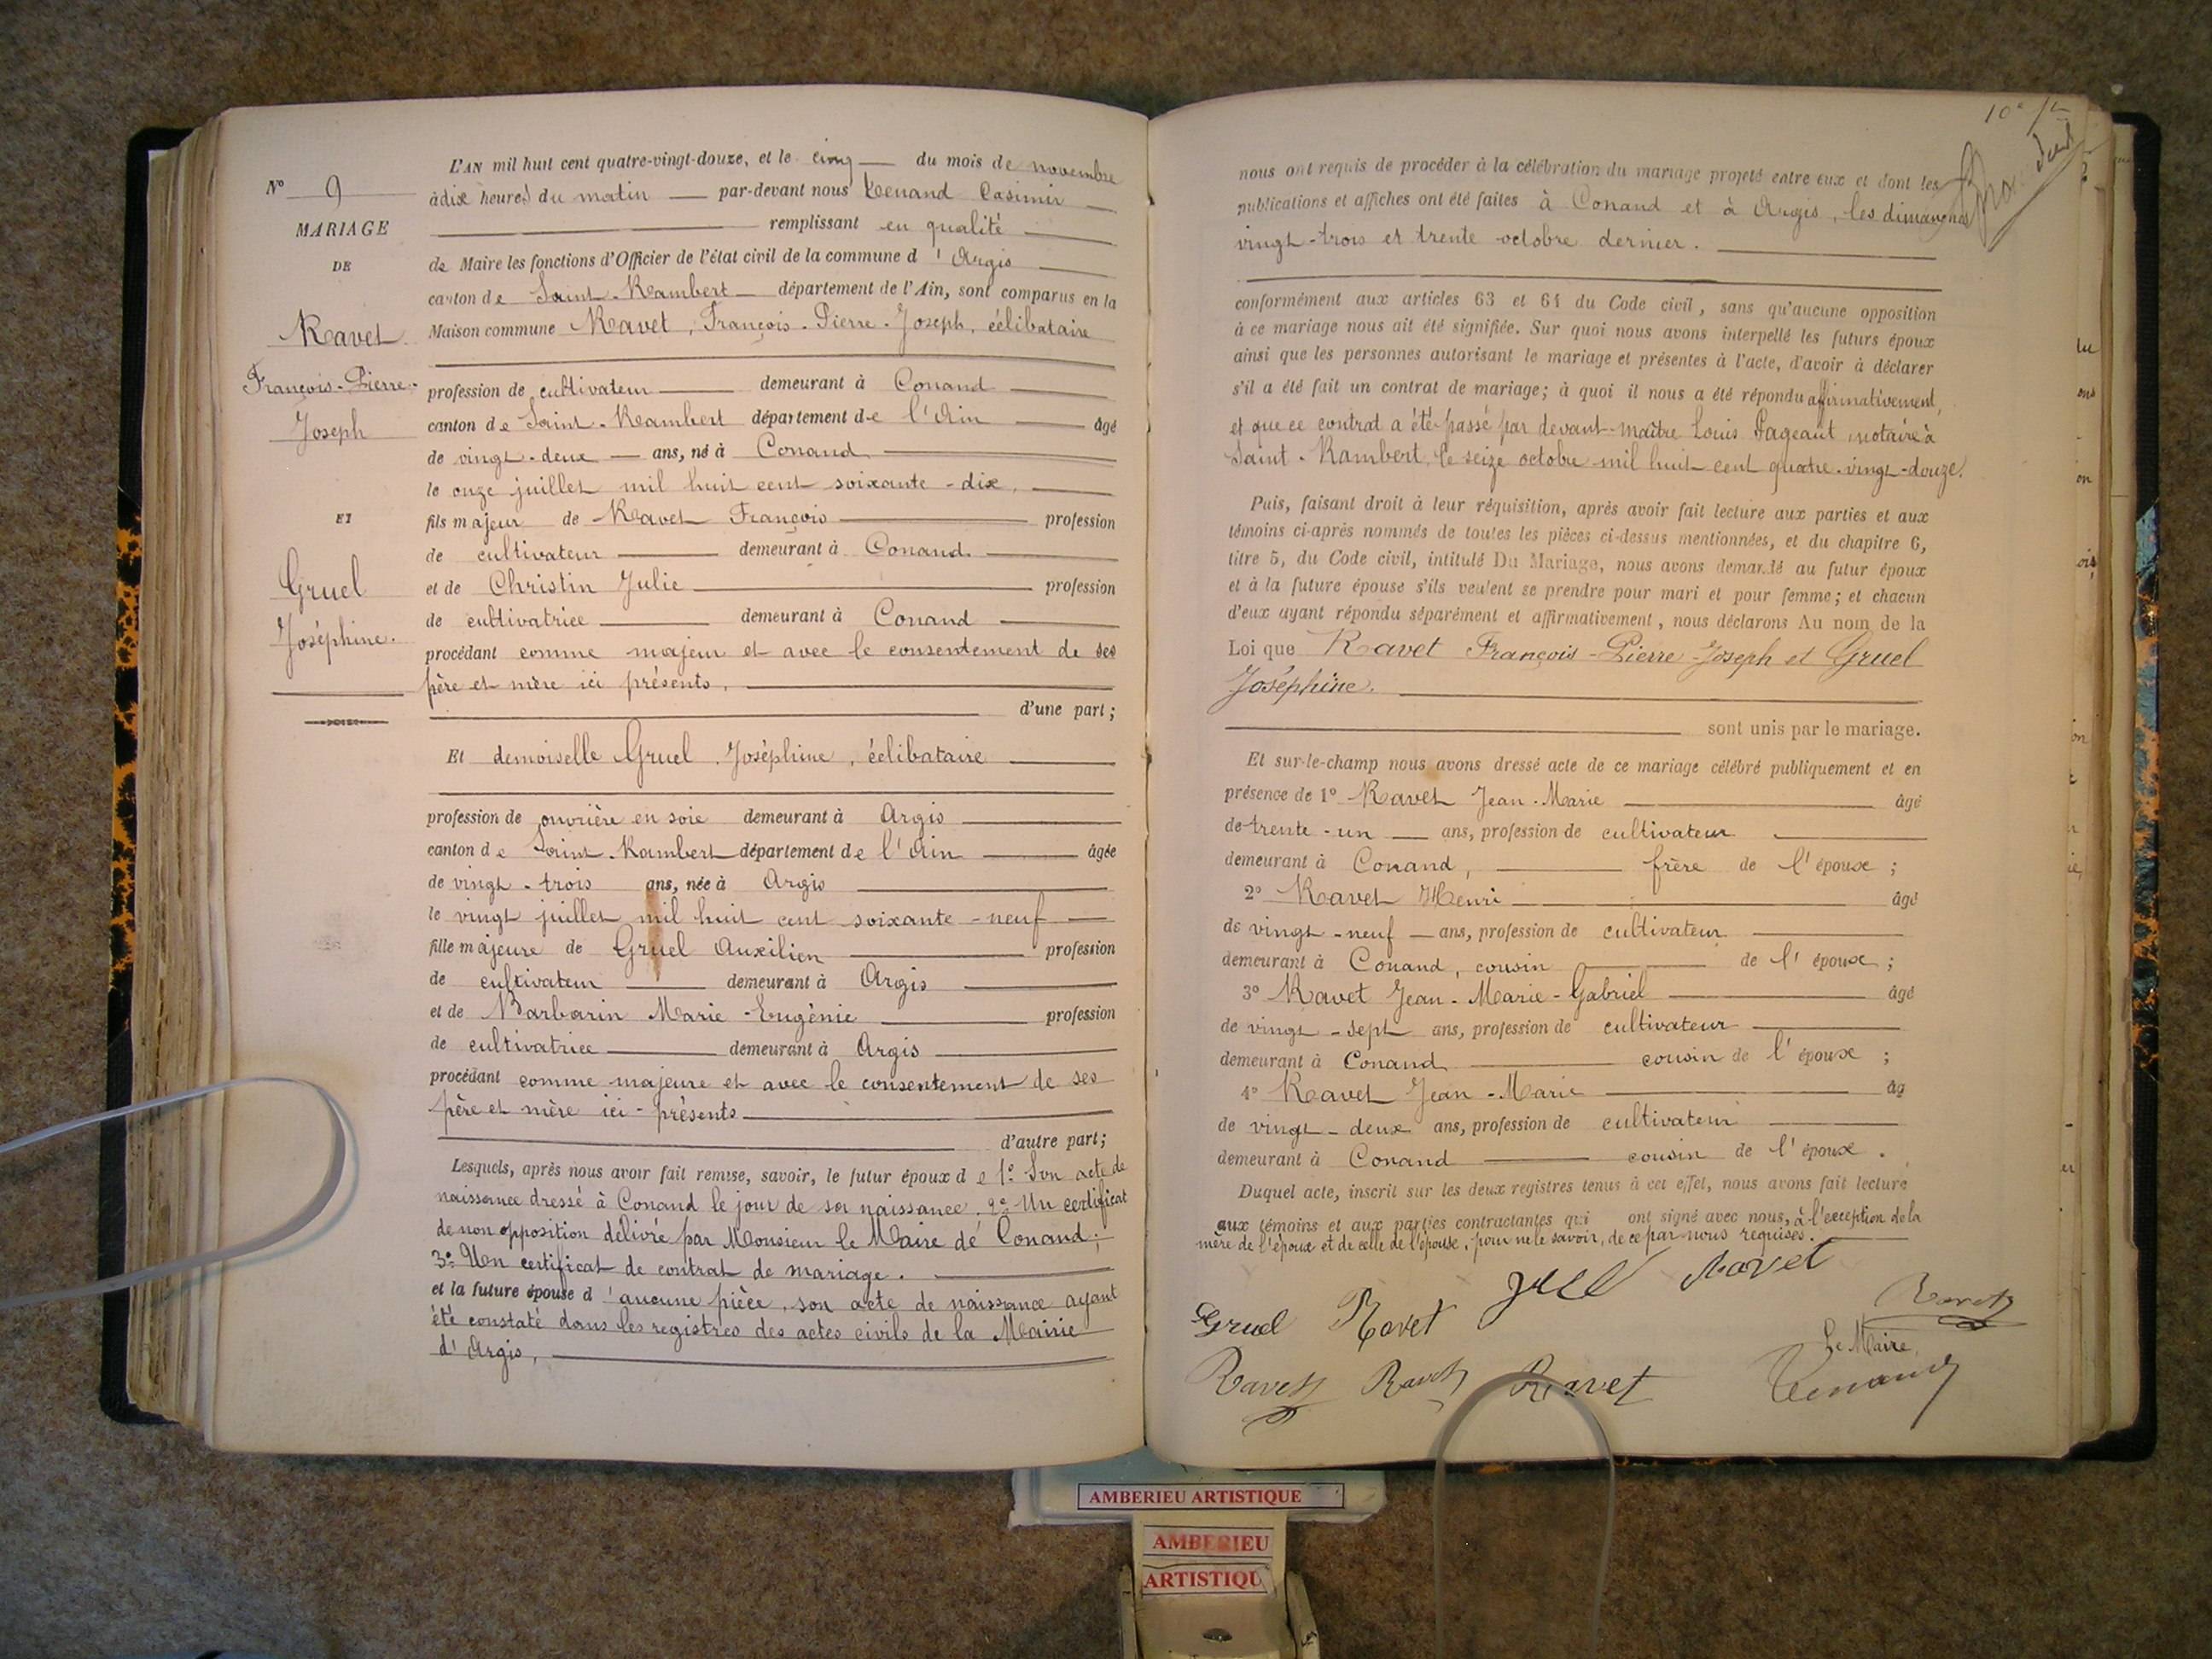 N° 9
MARIAGE
DE
Ravet
François-Pierre-
Joseph
ET
Gruel
Joséphine.
L'AN mil huit cent quatre-vingt-douze, et le cinq du mois de novembre
à dix heures du matin par-devant nous Tenand Casimir
remplissant en qualité
de Maire les fonctions d'Officier de l'état civil de la commune d'Argis
canton de Saint-Rambert département de l'Ain, sont comparus en la
Maison commune Ravet, François-Pierre-Joseph, célibataire
profession de cultivateur demeurant à Conand
canton de Saint-Rambert département de l'Ain âgé
de vingt-deux ans, né à Conand
le onze juillet mil huit cent soixante-dix,
fils majeur de Ravet François profession
de cultivateur demeurant à Conand
et de Christin Julie profession
de cultivatrice demeurant à Conand
procédant comme majeur et avec le consentement de ses
père et mère ici présents,
d'une part;
Et demoiselle Gruel, Joséphine, célibataire
profession de ouvrière en soie demeurant à Argis
canton de Saint-Rambert département de l'Ain âgée
de vingt-trois ans, née à Argis
le vingt juillet mil huit cent soixante-neuf
fille majeure de Gruel Auxilien profession
de cultivateur demeurant à Argis
et de Barbarin Marie-Eugénie profession
de cultivatrice demeurant à Argis
procédant comme majeure et avec le consentement de ses
père et mère ici-présents
d'autre part;
Lesquels, après nous avoir fait remise, savoir, le futur époux de 1° Son acte de
naissance dressé à Conand le jour de sa naissance. 2° Un certificat
de non opposition délivré par Monsieur le Maire de Conand;
3° Un certificat de contrat de mariage.
et la future épouse d'aucune pièce, son acte de naissance ayant
été constaté dans les registres des actes civils de la Mairie
d'Argis,
10e
nous ont requis de procéder à la célébration du mariage projeté entre eux et dont les
publications et affiches ont été faites à Conand et à Argis, les dimanches
vingt-trois et trente octobre dernier.
conformément aux articles 63 et 64 du Code civil, sans qu'aucune opposition
à ce mariage nous ait été signifiée. Sur quoi nous avons interpellé les futurs époux
ainsi que les personnes autorisant le mariage et présentes à l'acte, d'avoir à déclarer
s'il a été fait un contrat de mariage; à quoi il nous a été répondu affirmativement,
et que ce contrat a été passé par devant maître Louis Pageaut, notaire à
Saint-Rambert, le seize octobre mil huit cent quatre-vingt-douze.
Puis, faisant droit à leur réquisition, après avoir fait lecture aux parties et aux
témoins ci-après nommés de toutes les pièces ci-dessus mentionnées, et du chapitre 6,
titre 5, du Code civil, intitulé Du Mariage, nous avons demandé au futur époux
et à la future épouse s'ils veulent se prendre pour mari et pour femme; et chacun
d'eux ayant répondu séparément et affirmativement, nous déclarons Au nom de la
Loi que Ravet François-Pierre-Joseph et Gruel
Joséphine.
sont unis par le mariage.
Et sur-le-champ nous avons dressé acte de ce mariage célébré publiquement et en
présence de 1° Ravet Jean-Marie âgé
de trente-un ans, profession de cultivateur
demeurant à Conand, frère de l'époux;
2° Ravet Henri âgé
de vingt-neuf ans, profession de cultivateur
demeurant à Conand, cousin de l'époux;
3° Ravet Jean-Marie-Gabriel âgé
de vingt-sept ans, profession de cultivateur
demeurant à Conand cousin de l'époux;
4° Ravet Jean-Marie âg
de vingt-deux ans, profession de cultivateur
demeurant à Conand cousin de l'époux.
Duquel acte, inscrit sur les deux registres tenus à cet effet, nous avons fait lecture
aux témoins et aux parties contractantes qui ont signé avec nous, à l'exception de la
mère de l'époux et de celle de l'épouse, pour ne le savoir, de ce par nous requises.
Gruel Ravet Ravet
Ravet
Le Maire,
Ravet Ravet Ravet Tenand
AMBERIEU ARTISTIQUE
AMBERIEU
ARTISTIQU